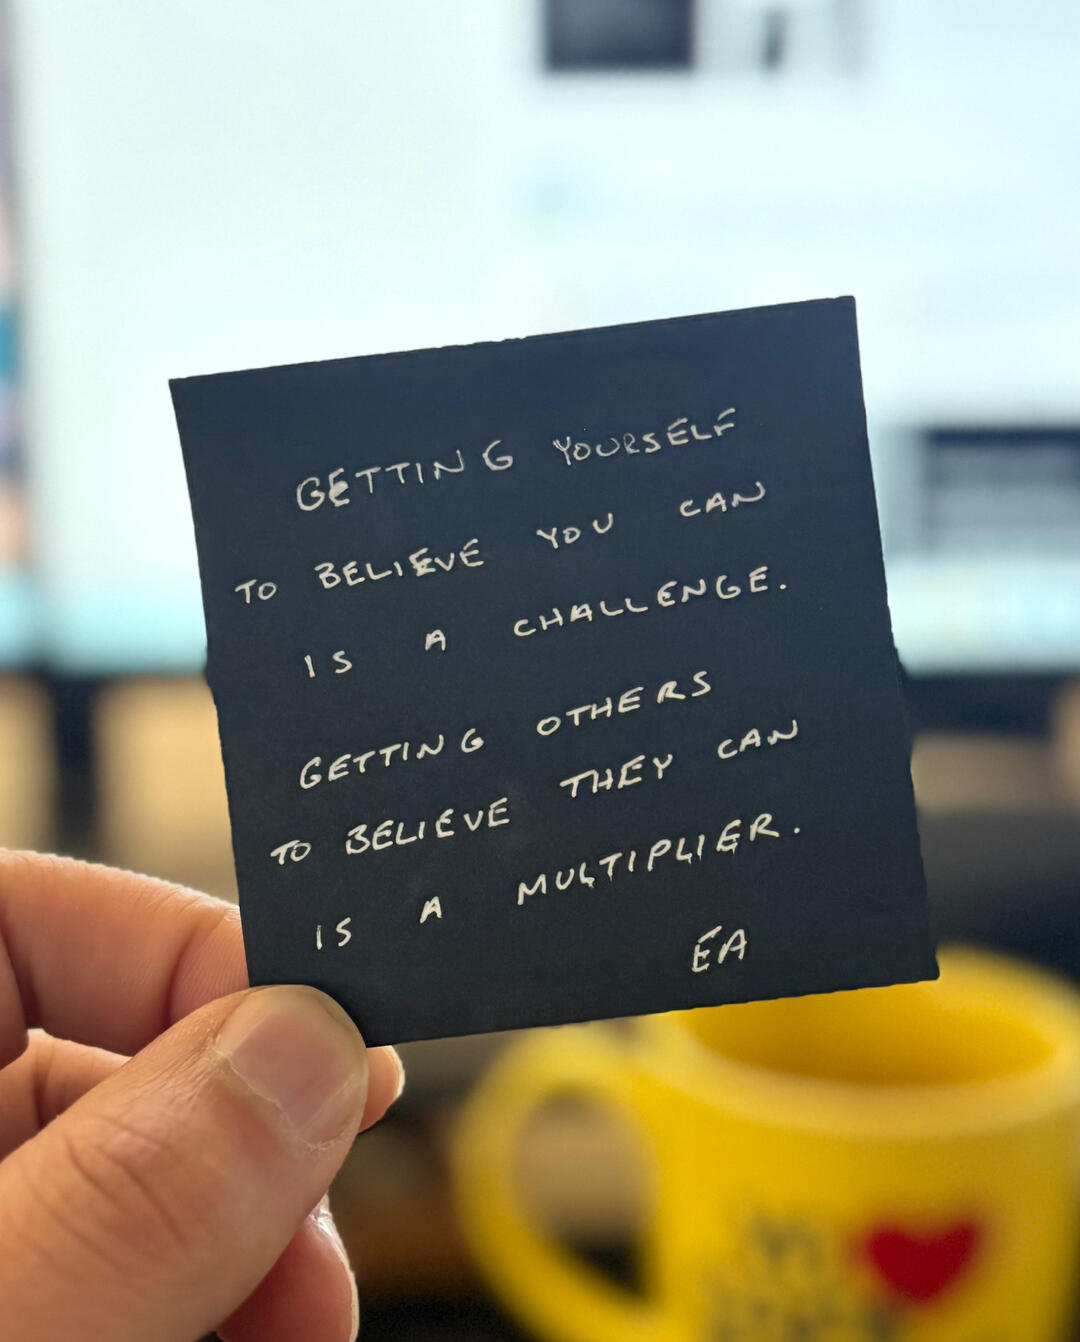 GETTING YOURSELF
TO BELIEVE YOU CAN
IS A CHALLENGE.
GETTING OTHERS
TO BELIEVE THEY CAN
IS A MULTIPLIER.
EA